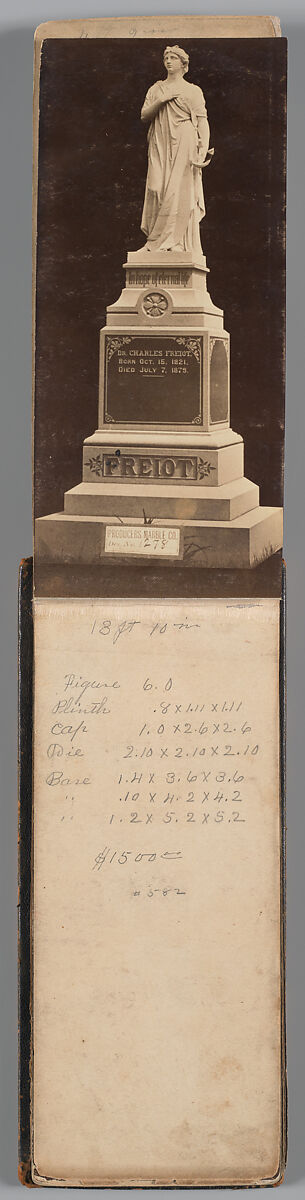 In hope of eternal life
DR. CHARLES FREIOT.
BORN OCT. 15, 1821.
DIED JULY 7, 1875.
FREIOT
PRODUCERS MARBLE CO.
Des. No. 1278
13 ft 10 in
Figure 6.0
Plinth .8 X 1.11 X 1.11
Cap 1.0 X 2.6 X 2.6
Die 2.10 X 2.10 X 2.10
Base 1.4 X 3.6 X 3.6
" .10 X 4.2 X 4.2
" 1.2 X 5.2 X 5.2
$1500 00
# 582